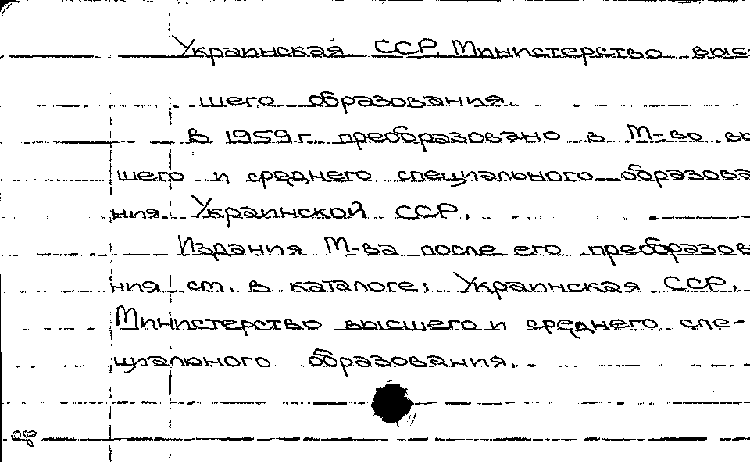 Украинская ССР. Министерство выс
шего образования.
В 1959 г. преобразовано в М-во вы
шего и среднего специального образова
ния Украинской ССР.
Издания М-ва после его преобразов
ния см. в каталоге: Украинская ССР.
Министерство высшего и среднего спе-
циального образования.